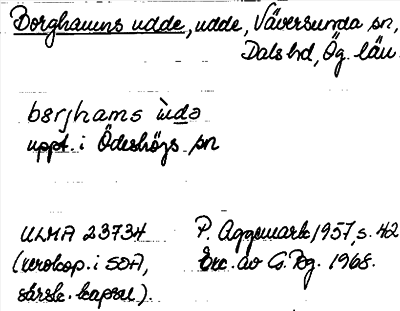 Borghamns udde, udde, Väversunda sn,
Dals hd, Ög. län.
bɔrjhams ùdə
uppt. i Ödeshögs sn
ULMA 23734
(xerokop. i SOA,
särsk. kapsel).
P. Aggemark, 1957, s. 42
Exc. av G. Bg. 1968.